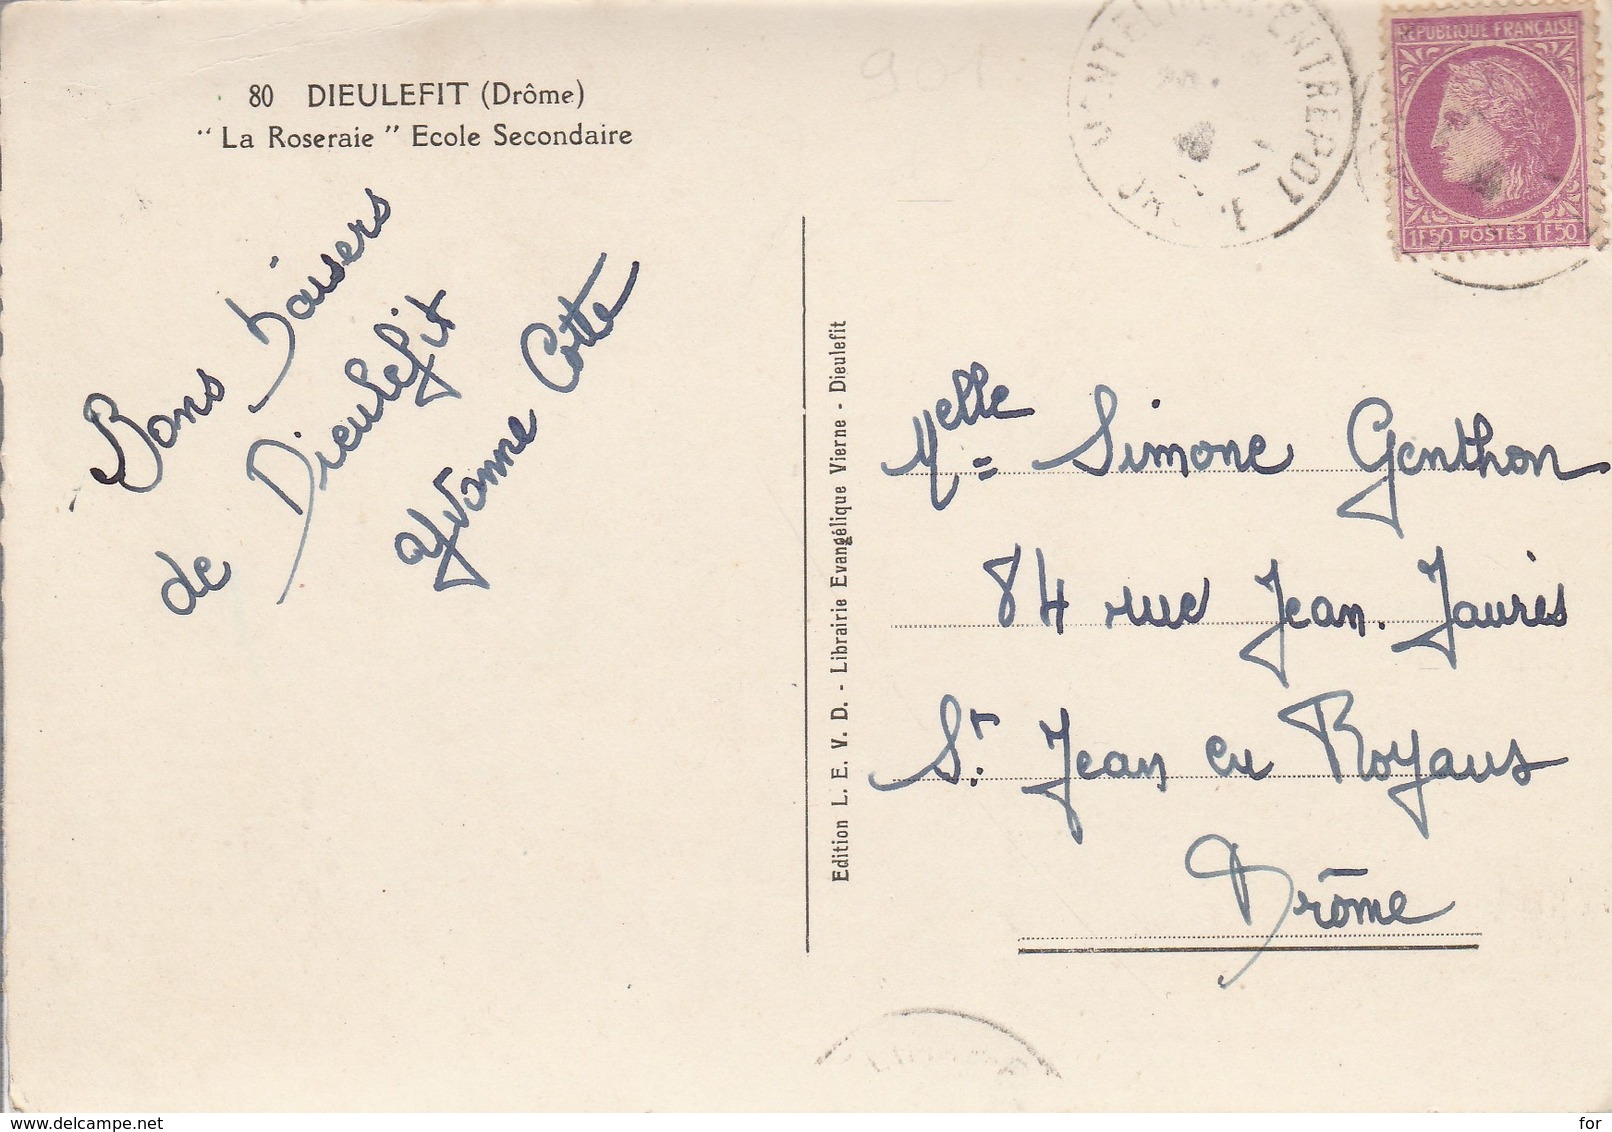 80 DIEULEFIT (Drôme)
" La Roseraie " Ecole Secondaire
Bons baisers
de Dieulefit
Yvonne Cotte
Edition L. E. V. D. - Librairie Evangélique Vierne - Dieulefit
REPUBLIQUE FRANÇAISE
1F50 POSTES 1F50
ENTREPOT
901
Melle Simone Genthon
84 rue Jean. Jaurès
St. Jean en Royans
Drôme
for
www.delcampe.net